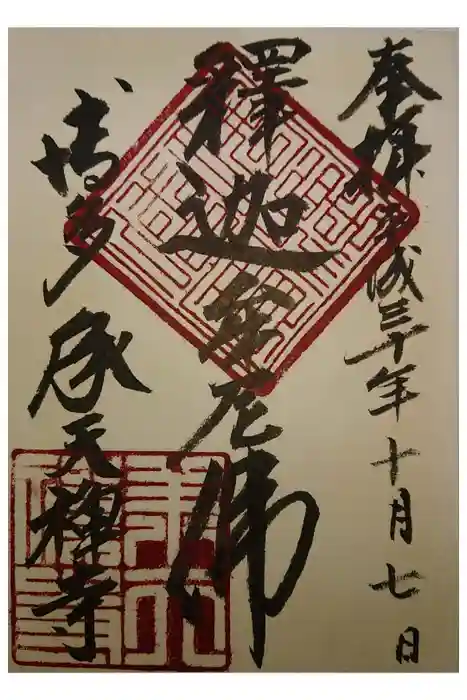 奉拝 平成三十年十月七日
釋迦如来佛
博多 承天禅寺
承天禅寺